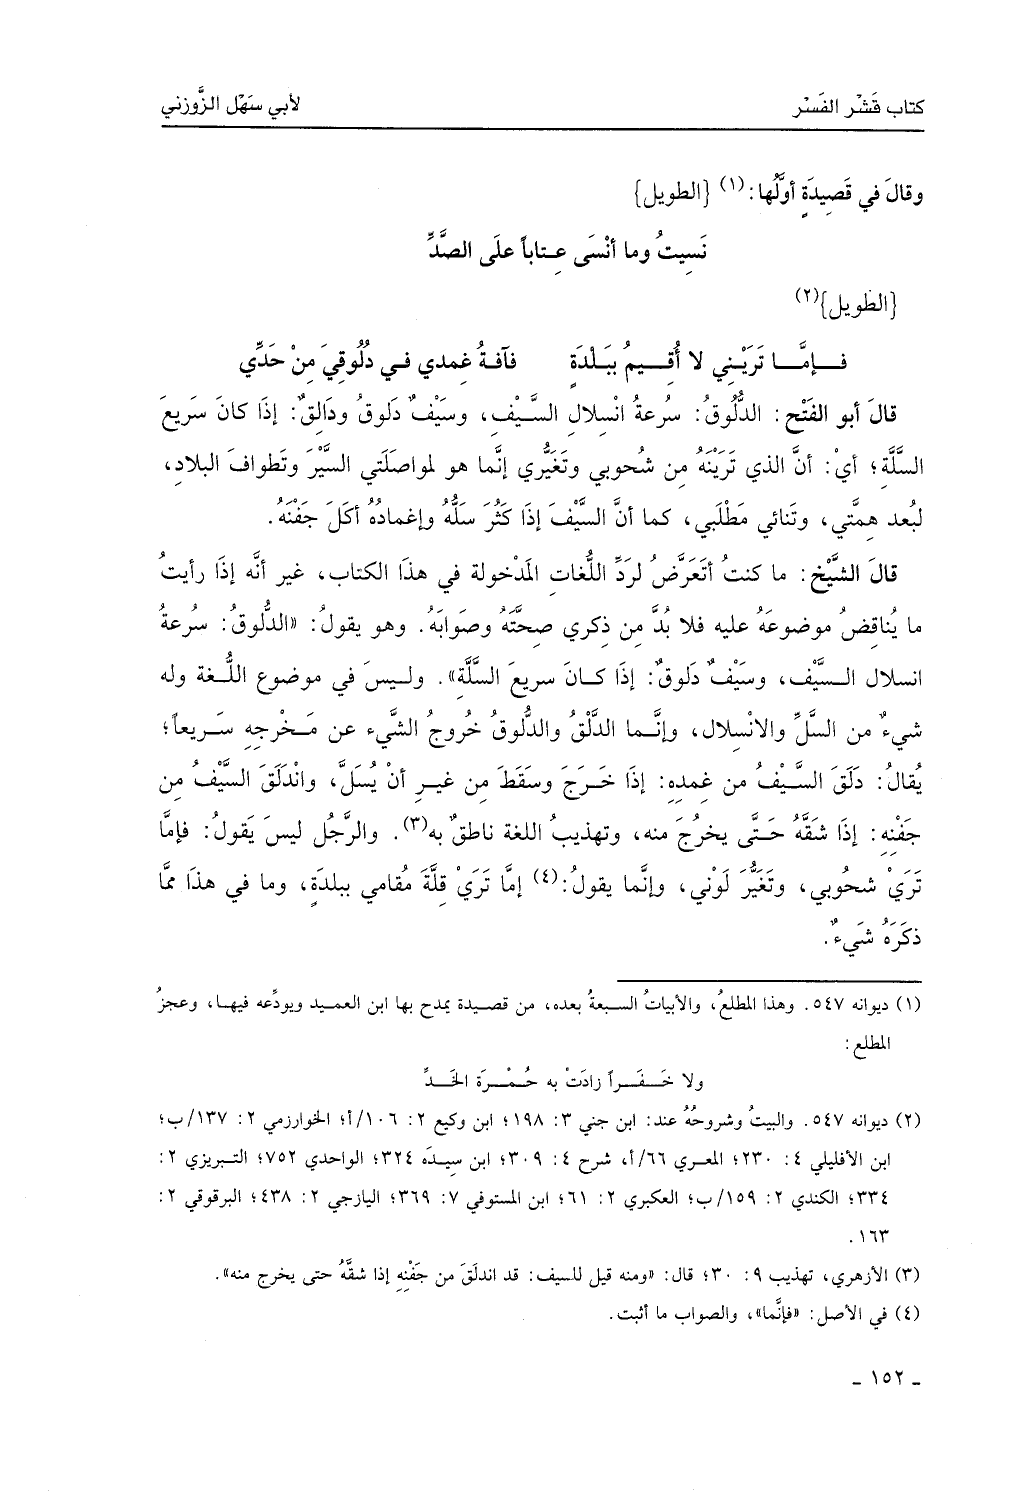 كتاب قَشْر الفَسْر لأبي سَهْل الزَّوزني
وقالَ في قَصِيدَةٍ أوَّلُها: (١) {الطويل}
نَسِيتُ وما أنْسَى عِتاباً علَى الصَّدِّ
{الطويل}(٢)
فـإمَّـا تَرَيْـنِي لا أُقِـيمُ بَبَلْدَةٍ فآفـةُ غِمدي فـي دُلُوقِيَ مِنْ حَدِّي
قالَ أبو الفَتْحِ: الدُّلُوقُ: سُرعةُ انْسِلالِ السَّيْفِ، وسَيْفٌ دَلوقٌ ودَالِقٌ: إذَا كانَ سَريعَ
السَّلَّةِ؛ أيْ: أنَّ الذي تَرَيْنَهُ مِن شُحوبي وتَغَيُّري إنَّما هو لمواصَلَتي السيَّرَ وتَطوافَ البلادِ،
لبُعدِ هِمَّتي، وتَنائي مَطْلَبي، كما أنَّ السيَّفَ إذَا كَثُرَ سَلُّهُ وإغمادُهُ أكَلَ جَفْنَهُ.
قالَ الشَّيْخُ: ما كنتُ أتَعَرَّضُ لرَدِّ اللُّغاتِ المَدْخولةِ في هذَا الكتابِ، غير أنَّه إذَا رأيتُ
ما يُناقِضُ موضوعَهُ عليه فلا بُدَّ مِن ذِكري صِحَّتَهُ وصَوابَهُ. وهو يقولُ: «الدُّلوقُ: سُرعةُ
انسلال السَّيْفِ، وسَيْفٌ دَلوقٌ: إذَا كـانَ سريعَ السَّلَّةِ». ولـيسَ في موضوع اللُّغة وله
شيءٌ من السلِّ والانْسِلال، وإنَّـما الدَّلْقُ والدُّلوقُ خُروجُ الشَّيءِ عن مَـخْرجِهِ سَـريعاً؛
يُقالُ: دَلَقَ السَّـيْفُ من غمدِهِ: إذَا خَـرَجَ وسَقَطَ مِن غيـرِ أنْ يُسَلَّ، وانْدَلَقَ السيَّفُ مِن
جَفْنِهِ: إذَا شَقَّهُ حَتَّى يخرُجَ منه، وتهذيبُ اللغة ناطقٌ به(٣). والرَّجُل ليسَ يَقولُ: فإمَّا
تَرَيْ شحُوبي، وتَغَيُّرَ لَوْني، وإنَّما يقولُ:(٤) إمَّا تَرَيْ قِلَّةَ مُقامي ببلدَةٍ، وما في هذَا ممَّا
ذكَرَهُ شَيءٌ.
(١) ديوانه ٥٤٧. وهذا المطلعُ، والأبياتُ السبعةُ بعده، من قصيدة يمدح بها ابن العميد ويودِّعه فيهـا، وعجزُ
المطلع:
ولا خَـفَـراً زادَتْ به حُـمْـرَة الخَـدِّ
(٢) ديوانه ٥٤٧. والبيتُ وشروحُهُ عند: ابن جني ٣: ١٩٨؛ ابن وكيع ٢: ١٠٦/أ؛ الخوارزمي ٢: ١٣٧/ب؛
ابن الأفليلي ٤: ٢٣٠؛ المعـري ٦٦/أ، شرح ٤: ٣٠٩؛ ابن سيِـدَه ٣٢٤؛ الواحدي ٧٥٢؛ التـبريزي ٢:
٣٣٤؛ الكندي ٢: ١٥٩/ب؛ العكبري ٢: ٦١؛ ابن المستوفي ٧: ٣٦٩؛ اليازجي ٢: ٤٣٨؛ البرقوقي ٢:
١٦٣.
(٣) الأزهري، تهذيب ٩: ٣٠؛ قال: «ومنه قيل للسيف: قد اندلَقَ من جَفْنِهِ إذا شقَّهُ حتى يخرج منه».
(٤) في الأصل: «فإنَّما»، والصواب ما أثبت.
ـ ١٥٢ ـ